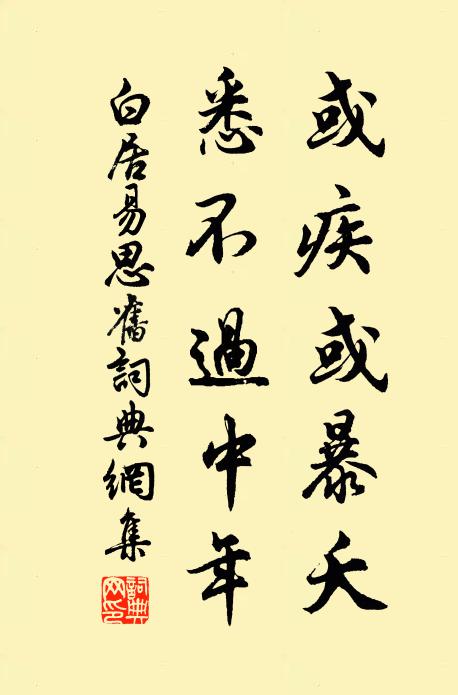 或疾或暴夭
悉不過中年
白居易思舊詞典網集
詞典網印